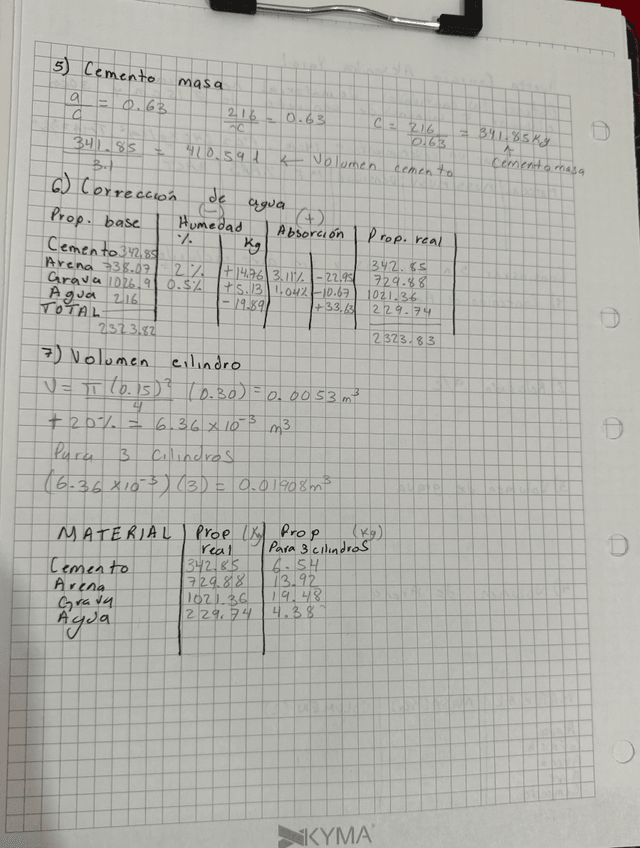 5) Cemento masa
a/c = 0.63 216/c = 0.63 C = 216/0.63 = 341.85 Kg
↑ Cemento masa
341.85/3.1 = 410.59 l ← Volumen cemento
6) Corrección de agua
(-) (+)
Prop. base Humedad Absorción Prop. real
% Kg
Cemento 342.85 342.85
Arena 738.07 2% +14.76 3.11% -22.95 729.88
Grava 1026.9 0.5% +5.13 1.04% -10.67 1021.36
Agua 216 -19.89 +33.63 229.74
TOTAL
2323.82 2323.83
7) Volumen cilindro
V = π (0.15)²/4 (0.30) = 0.0053 m³
+ 20% = 6.36 x10⁻³ m³
Para 3 cilindros
(6.36 x10⁻³)(3) = 0.01908 m³
MATERIAL Prop (Kg) Prop (Kg)
real Para 3 cilindros
Cemento 342.85 6.54
Arena 729.88 13.92
Grava 1021.36 19.48
Agua 229.74 4.38
KYMA